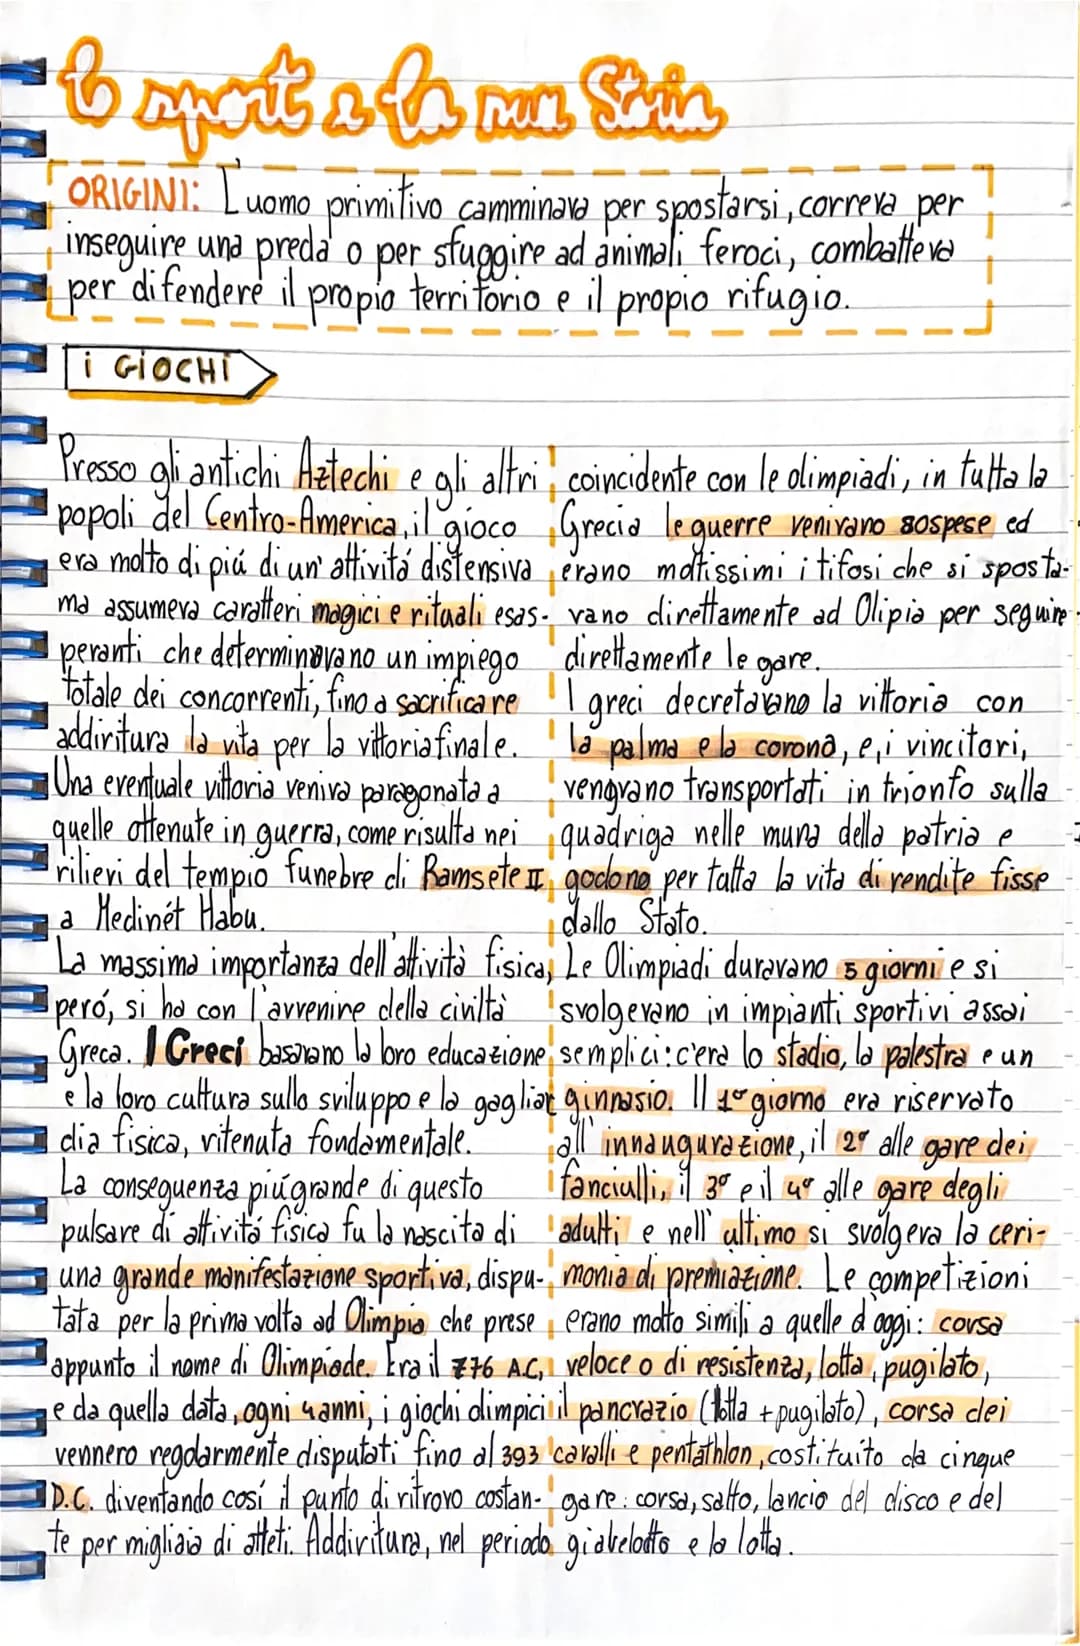 Lo sport e la sua Storia
ORIGINI: L'uomo primitivo camminava per spostarsi, correva per
inseguire una preda o per sfuggire ad animali feroci, combatteva
per difendere il proprio territorio e il propio rifugio.
i GIOCHI
Presso gli antichi Aztechi e gli altri
popoli del Centro-America, il gioco
era molto di piú di un' attivitá distensiva
ma assumeva caratteri magici e rituali esas-
peranti che determinavano un impiego
totale dei concorrenti, fino a sacrificare
addiritura la vita per la vittoria finale.
Una eventuale vittoria veniva paragonata a
quelle ottenute in guerra, come risulta nei
rilievi del tempio funebre di Ramsete II
a Medinét Habu.
La massima importanza dell'attività fisica,
peró, si ha con l'avvenire della civiltà
Greca. I Greci basavano la loro educazione
e la loro cultura sullo sviluppo e la gagliar
dia fisica, ritenuta fondamentale.
La conseguenza piú grande di questo
pulsare di attivitá fisica fu la nascita di
una grande manifestazione sportiva, dispu-
tata per la prima volta ad Olimpia che prese
appunto il nome di Olimpiade. Era il 776 A.C,
e da quella data, ogni 4 anni, i giochi olimpici
vennero regolarmente disputati fino al 393
D.C. diventando cosí il punto di ritrovo costan-
te per migliaia di atleti. Addiritura, nel periodo
coincidente con le olimpiadi, in tutta la
Grecia le guerre venivano sospese ed
erano moltissimi i tifosi che si sposta-
vano direttamente ad Olipia per seguire
direttamente le gare.
I greci decretavano la vittoria con
la palma e la corona, e, i vincitori,
vengvano transportati in trionfo sulla
quadriga nelle mura della patria e
godono per tutta la vita di rendite fisse
dallo Stato.
Le Olimpiadi duravano 5 giorni e si
svolgevano in impianti sportivi assai
semplici: c'era lo stadio, la palestra e un
ginnasio. Il 1º giorno era riservato
all'innaugurazione, il 2º alle gare dei
fanciulli, il 3º e il 4º alle gare degli
adulti e nell'ultimo si svolgeva la ceri-
monia di premiazione. Le competizioni
erano molto simili a quelle d'oggi: corsa
veloce o di resistenza, lotta, pugilato,
il pancrazio (lotta + pugilato), corsa dei
cavalli e pentathlon, costituito da cinque
gare: corsa, salto, lancio del disco e del
giavelotto e la lotta.